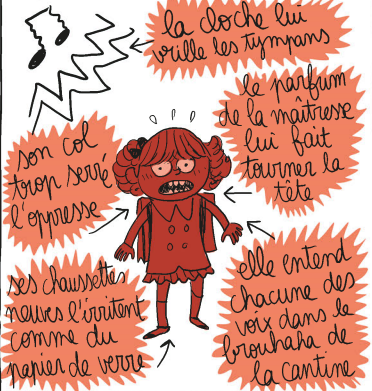 la cloche lui
vrille les tympans
le parfum
de la maîtresse
lui fait
tourner la
tête
son col
trop serré
l'oppresse
ses chaussettes
neuves l'irritent
comme du
papier de verre
elle entend
chacune des
voix dans le
brouhaha de
la cantine